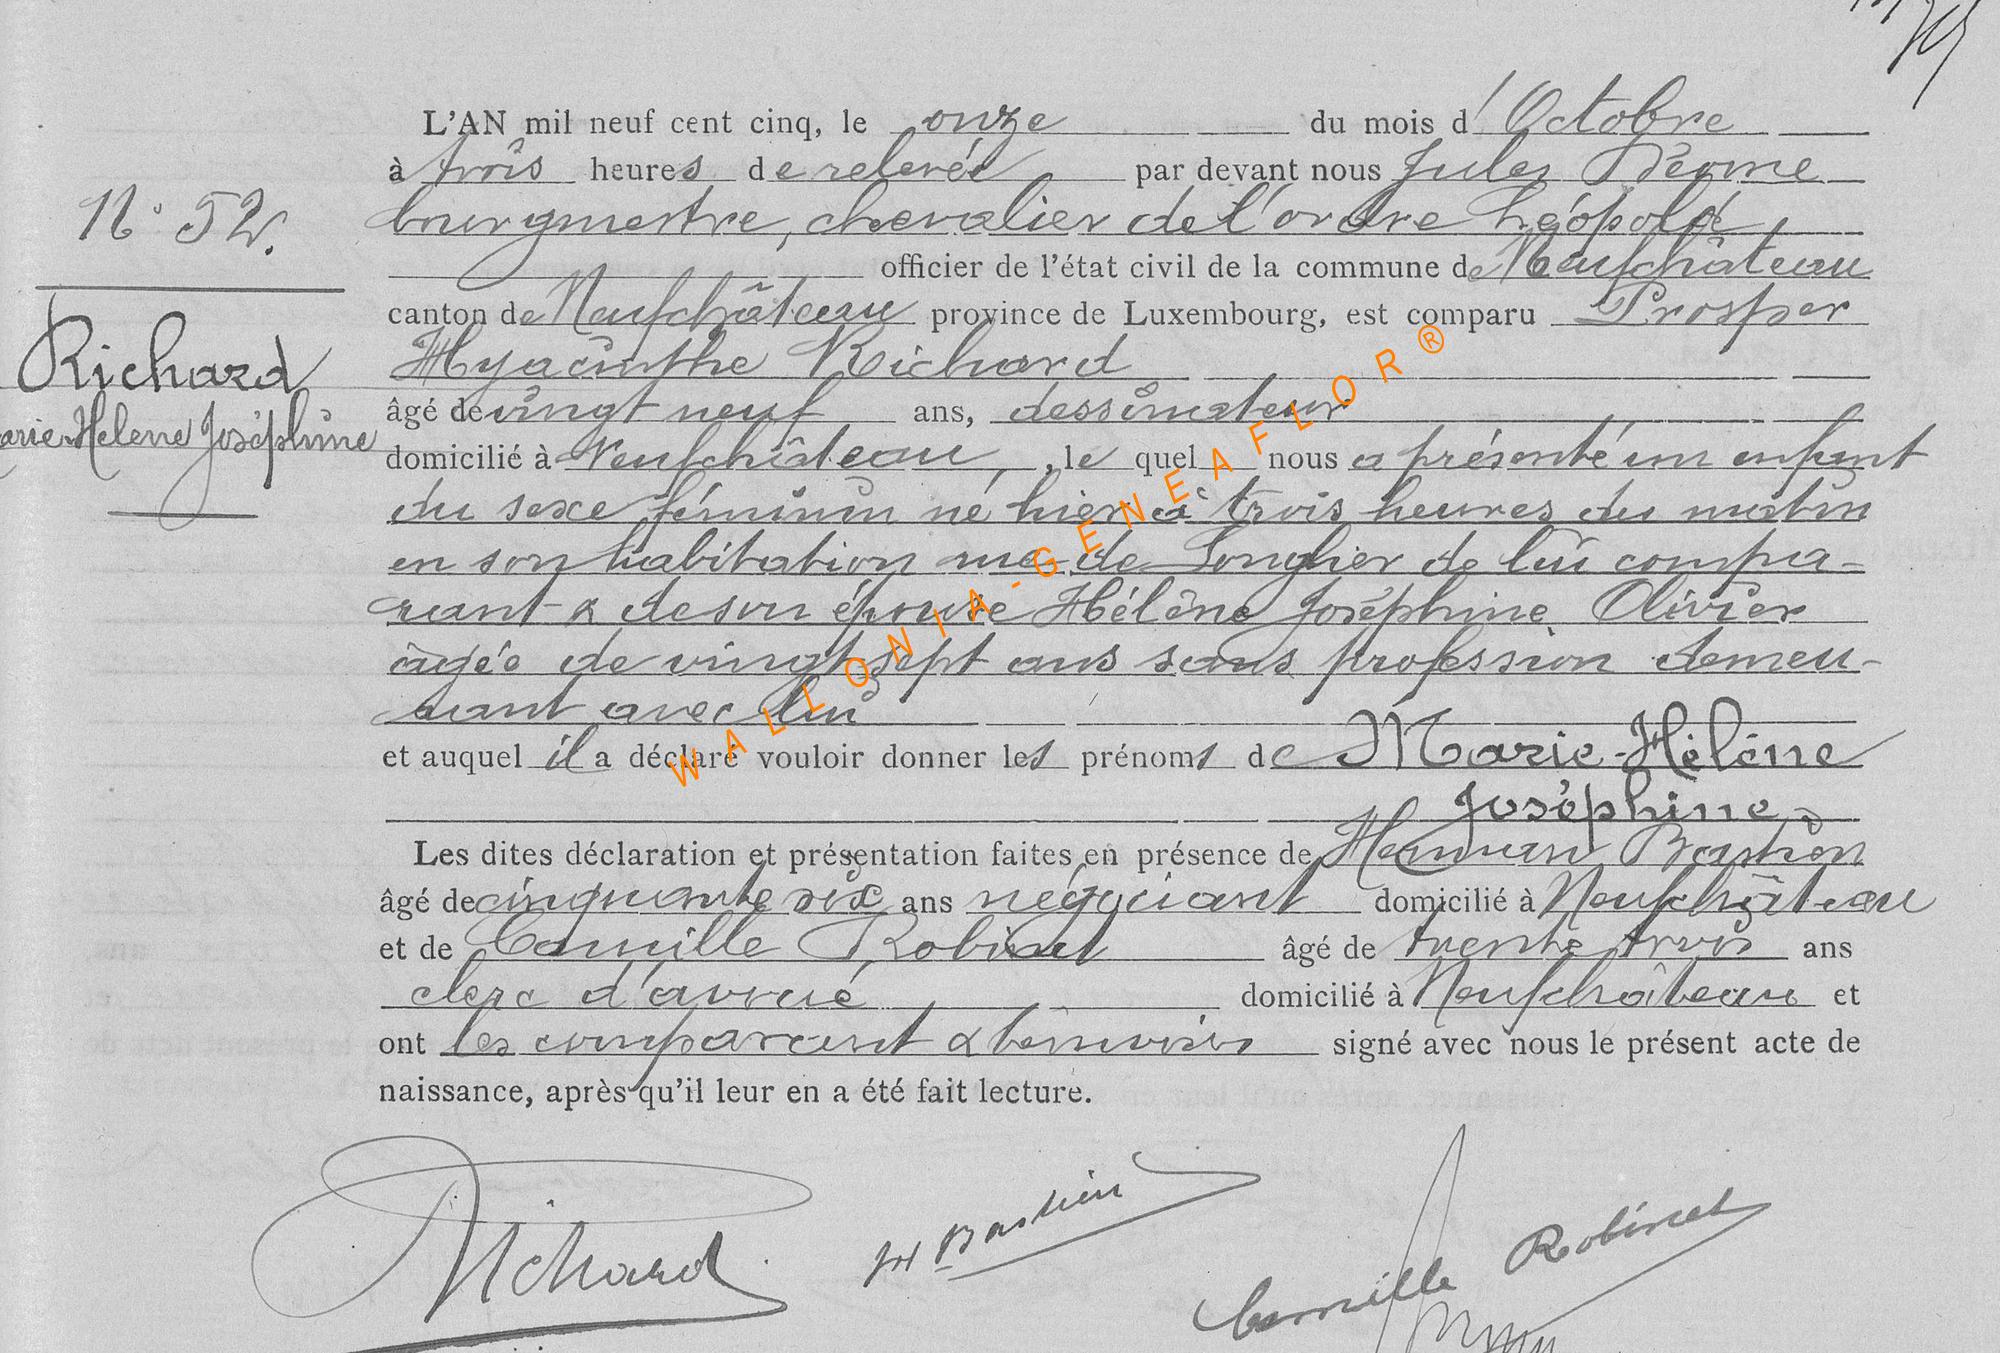 L'AN mil neuf cent cinq, le onze du mois d'Octobre
à trois heures de relevée par devant nous Jules
bourgmestre, chevalier de l'ordre Léopold,
officier de l'état civil de la commune de Neufchâteau
canton de Neufchâteau province de Luxembourg, est comparu Prosper
Hyacinthe Richard
âgé de vingt neuf ans, dessinateur
domicilié à Neufchâteau, le quel nous a présenté un enfant
du sexe féminin né hier à trois heures du matin
en son habitation rue de Longlier de lui compa-
rant & de son épouse Hélène Joséphine Olivier
âgée de vingt sept ans sans profession demeu-
rant avec lui
et auquel il a déclaré vouloir donner les prénoms de Marie-Hélène
Joséphine
Les dites déclaration et présentation faites en présence de Herman Bastien
âgé de cinquante six ans négociant domicilié à Neufchâteau
et de Camille Robinet âgé de trente trois ans
clerc d'avoué domicilié à Neufchâteau et
ont les comparant & témoins signé avec nous le présent acte de
naissance, après qu'il leur en a été fait lecture.
N° 52.
Richard
arie-Hélène Joséphine
Richard
H Bastien
Camille Robinet
WALLONIA-GENEAFLOR®